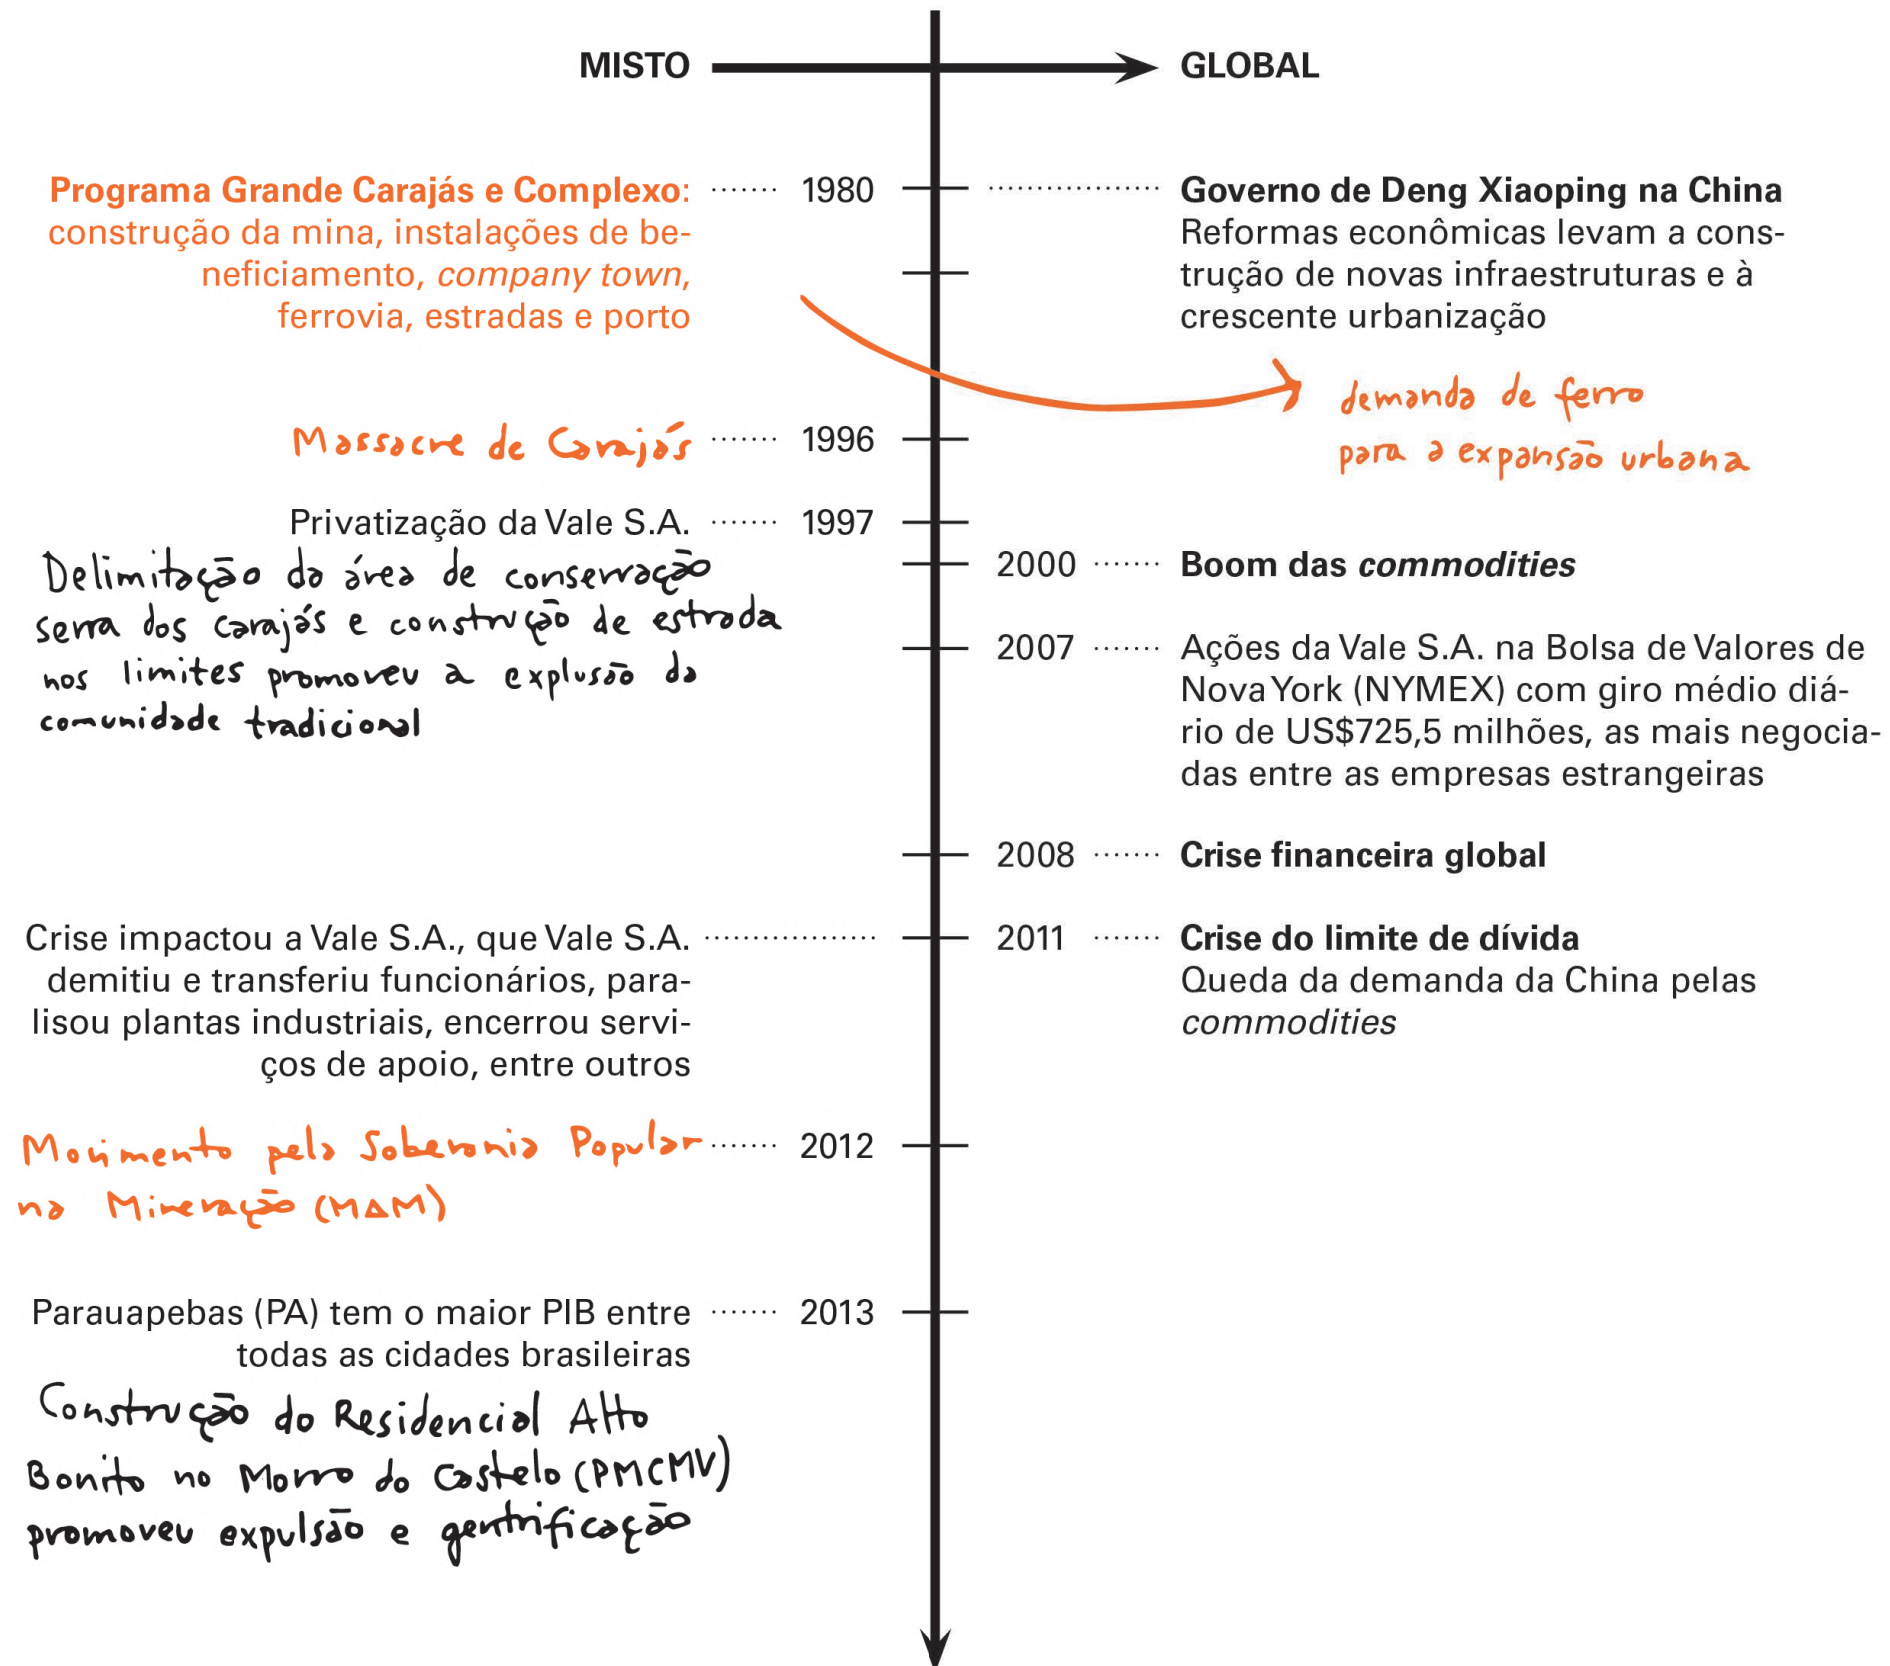 MISTO
GLOBAL
Programa Grande Carajás e Complexo:
construção da mina, instalações de be-
neficiamento, company town,
ferrovia, estradas e porto
1980
Governo de Deng Xiaoping na China
Reformas econômicas levam a cons-
trução de novas infraestruturas e à
crescente urbanização
demanda de ferro
para a expansão urbana
Massacre de Carajás
1996
Privatização da Vale S.A.
1997
Delimitação da área de conservação
serra dos carajás e construção de estrada
nos limites promoveu a explusão da
comunidade tradicional
2000
Boom das commodities
2007
Ações da Vale S.A. na Bolsa de Valores de
Nova York (NYMEX) com giro médio diá-
rio de US$725,5 milhões, as mais negocia-
das entre as empresas estrangeiras
2008
Crise financeira global
Crise impactou a Vale S.A., que Vale S.A.
demitiu e transferiu funcionários, para-
lisou plantas industriais, encerrou servi-
ços de apoio, entre outros
2011
Crise do limite de dívida
Queda da demanda da China pelas
commodities
Movimento pela Soberania Popular
na Mineração (MAM)
2012
Parauapebas (PA) tem o maior PIB entre
todas as cidades brasileiras
2013
Construção do Residencial Alto
Bonito no Morro do Castelo (PMCMV)
promoveu expulsão e gentrificação